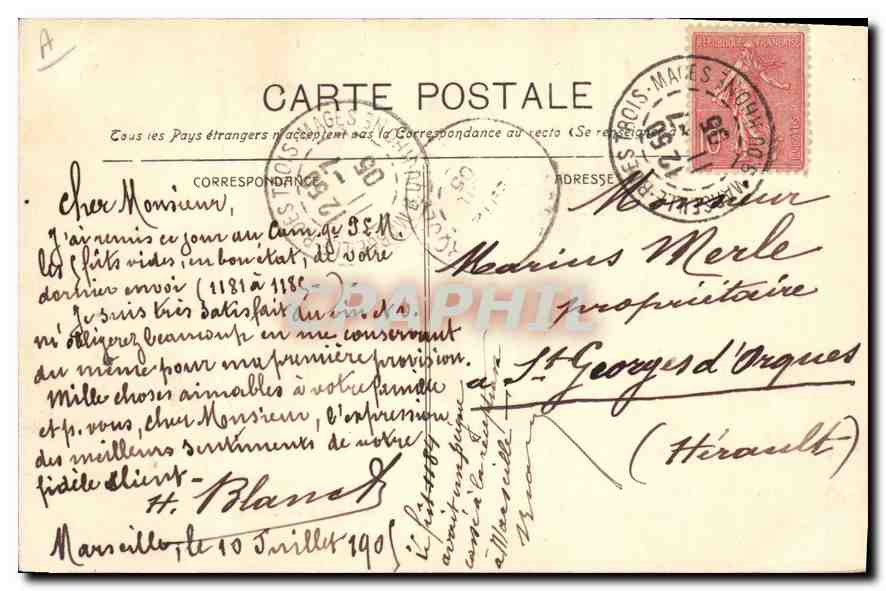 A
CARTE POSTALE
Tous les Pays étrangers n'acceptent pas la Correspondance au recto (Se renseigner à la
CORRESPONDANCE
ADRESSE
RÉPUBLIQUE FRANÇAISE
MARSEILLE-R. DES TROIS-MAGES
BCHES DU RHONE
12 50
11 - 7
05
CPAPHIL
Cher Monsieur,
J'ai remis ce jour au Cam. ge P.L.M.
les 5 fûts vides, en bon état, de votre
dernier envoi (1181 à 1185)
Je suis très satisfait du vin et v.
m'obligerez beaucoup en me conservant
du même pour ma première provision.
Mille choses aimables à votre famille
et p. vous, cher Monsieur, l'expression
des meilleurs sentiments de votre
fidèle client
H. Blanc
Marseille, le 10 Juillet 1905
le fût 1184
avait un peigne
cassé à la réception
à Marseille
Monsieur
Marius Merle
propriétaire
à St Georges d'Orques
(Hérault)